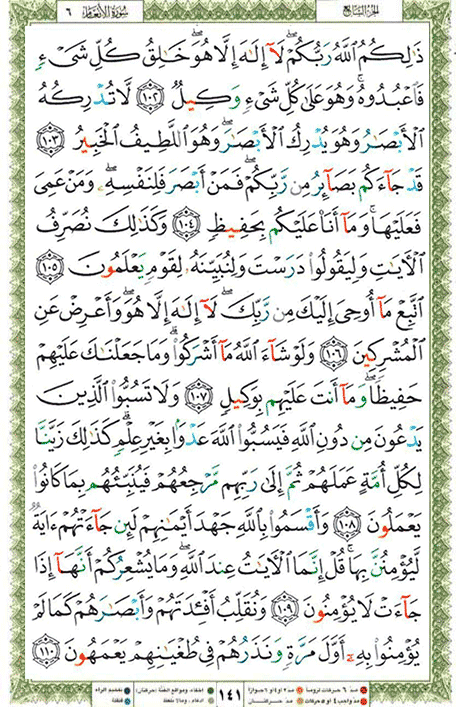 سورة الأنعام ٦ الجزء السابع
ذَٰلِكُمُ ٱللَّهُ رَبُّكُمْ ۖ لَآ إِلَٰهَ إِلَّا هُوَ ۖ خَٰلِقُ كُلِّ شَىْءٍ
فَٱعْبُدُوهُ ۚ وَهُوَ عَلَىٰ كُلِّ شَىْءٍ وَكِيلٌ ١٠٢ لَّا تُدْرِكُهُ
ٱلْأَبْصَٰرُ وَهُوَ يُدْرِكُ ٱلْأَبْصَٰرَ ۖ وَهُوَ ٱللَّطِيفُ ٱلْخَبِيرُ ١٠٣
قَدْ جَآءَكُم بَصَآئِرُ مِن رَّبِّكُمْ ۖ فَمَنْ أَبْصَرَ فَلِنَفْسِهِۦ ۖ وَمَنْ عَمِىَ
فَعَلَيْهَا ۚ وَمَآ أَنَا۠ عَلَيْكُم بِحَفِيظٍ ١٠٤ وَكَذَٰلِكَ نُصَرِّفُ
ٱلْءَايَٰتِ وَلِيَقُولُوا۟ دَرَسْتَ وَلِنُبَيِّنَهُۥ لِقَوْمٍ يَعْلَمُونَ ١٠٥
ٱتَّبِعْ مَآ أُوحِىَ إِلَيْكَ مِن رَّبِّكَ ۖ لَآ إِلَٰهَ إِلَّا هُوَ ۖ وَأَعْرِضْ عَنِ
ٱلْمُشْرِكِينَ ١٠٦ وَلَوْ شَآءَ ٱللَّهُ مَآ أَشْرَكُوا۟ ۗ وَمَا جَعَلْنَٰكَ عَلَيْهِمْ
حَفِيظًا ۖ وَمَآ أَنتَ عَلَيْهِم بِوَكِيلٍ ١٠٧ وَلَا تَسُبُّوا۟ ٱلَّذِينَ
يَدْعُونَ مِن دُونِ ٱللَّهِ فَيَسُبُّوا۟ ٱللَّهَ عَدْوًۢا بِغَيْرِ عِلْمٍ ۗ كَذَٰلِكَ زَيَّنَّا
لِكُلِّ أُمَّةٍ عَمَلَهُمْ ثُمَّ إِلَىٰ رَبِّهِم مَّرْجِعُهُمْ فَيُنَبِّئُهُم بِمَا كَانُوا۟
يَعْمَلُونَ ١٠٨ وَأَقْسَمُوا۟ بِٱللَّهِ جَهْدَ أَيْمَٰنِهِمْ لَئِن جَآءَتْهُمْ ءَايَةٌ
لَّيُؤْمِنُنَّ بِهَا ۚ قُلْ إِنَّمَا ٱلْءَايَٰتُ عِندَ ٱللَّهِ ۖ وَمَا يُشْعِرُكُمْ أَنَّهَآ إِذَا
جَآءَتْ لَا يُؤْمِنُونَ ١٠٩ وَنُقَلِّبُ أَفْـِٔدَتَهُمْ وَأَبْصَٰرَهُمْ كَمَا لَمْ
يُؤْمِنُوا۟ بِهِۦٓ أَوَّلَ مَرَّةٍ وَنَذَرُهُمْ فِى طُغْيَٰنِهِمْ يَعْمَهُونَ ١١٠
١٤١